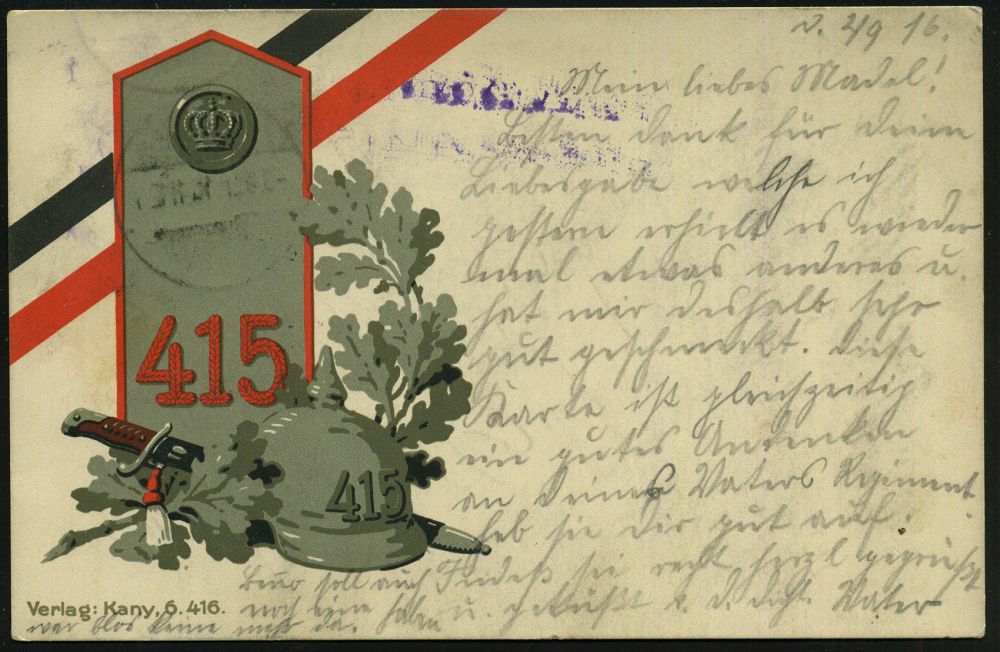 d. 2/9 16.
Mein liebes Madel!
Besten dank für deine
Liebesgabe welche ich
gestern erhielt es wieder
mal etwas anderes u.
hat mir deshalb sehr
gut geschmeckt. diese
Karte ist gleichzeitig
ein gutes Andenken
an deines Vaters Regiment.
heb sie dir gut auf
sei recht herzl gegrüßt
u geküßt v. d. Vater
415
415
Benno soll auch
noch eine haben
war blos keine mehr da.
Verlag: Kany, 6. 416.